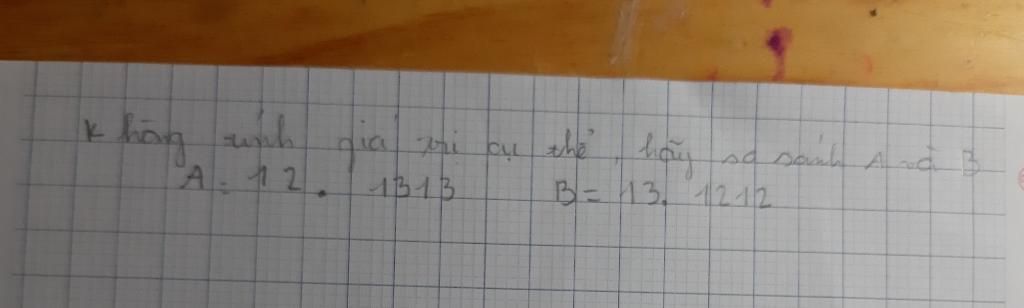 Không tính giá trị cụ thể, hãy so sánh A và B
A = 12 . 1313 B = 13. 1212